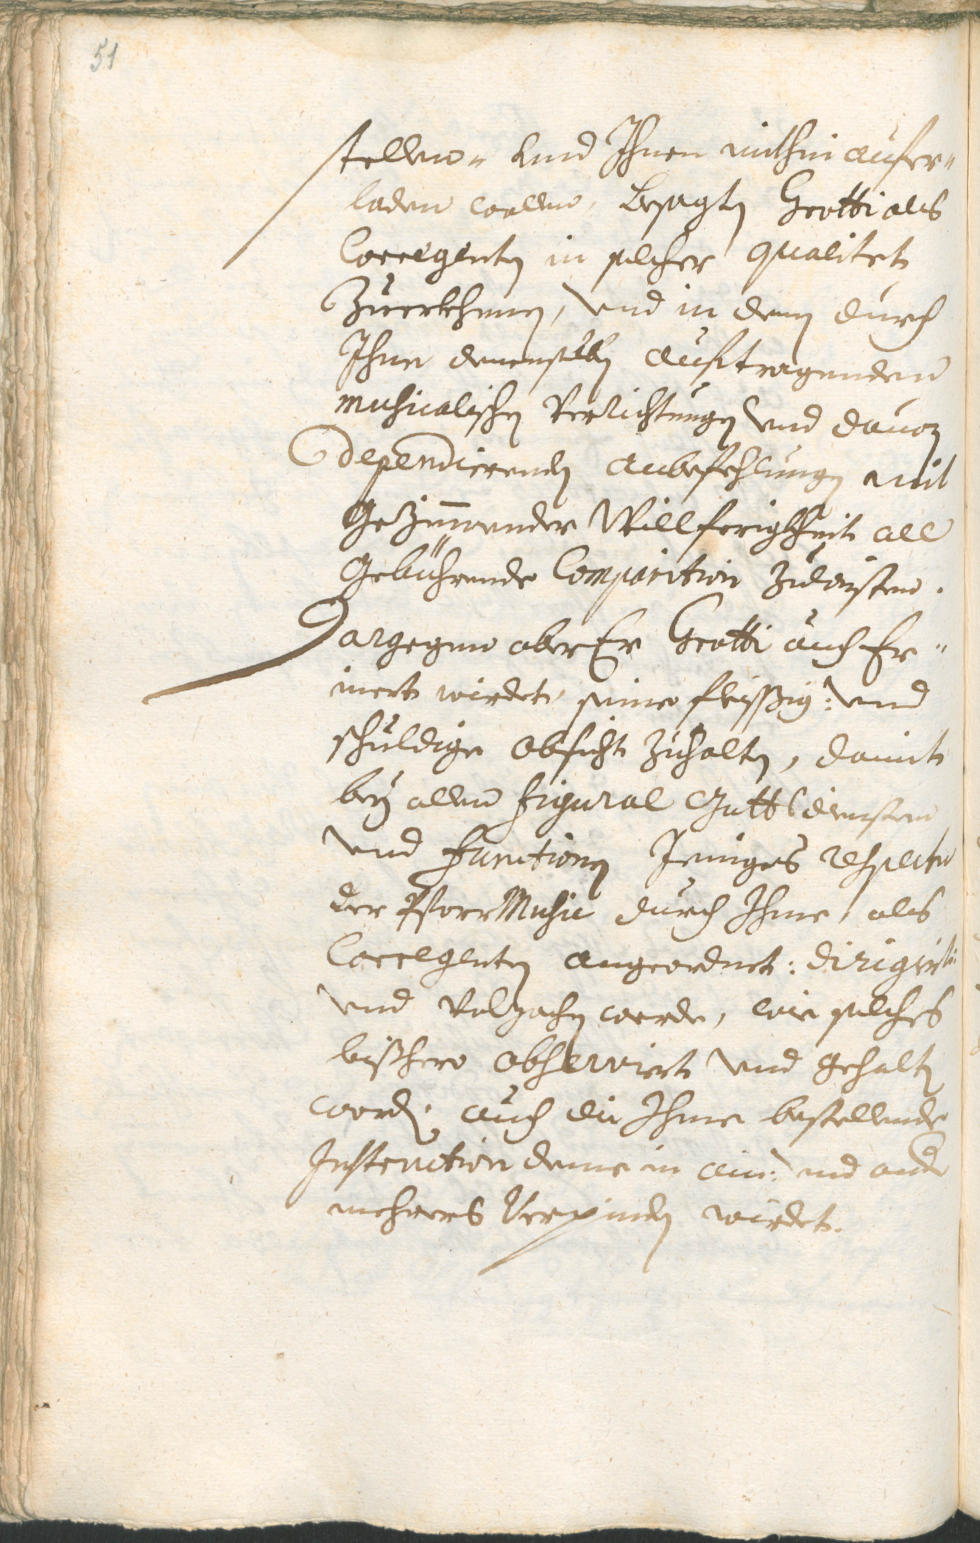 51
stellen- und Ihnen mithin aufer-
laden wollen, besagten Grotti als
Corregenten in solcher qualitet
Zuerkhenen, und in denen durch
Ihne denenselben auftragenden
musicalischen Verrichtungen und davon
dependierenden anbefehlungen mit
Gezimmender Willferigkheit all
Gebührende Comparition zulaisten.
Dargegen aber Er Grotti auch Er-
inert wirdet, seine fleissig: und
schuldige obsicht zuhalten, damit
bey allen figural Gottsdiensten
und functionen Jeniges respectu
der PfarrMusic durch Ihme, als
Corregenten angeordnet: dirigirt:
und volzochen werde, wie solches
bishero observirt und gehalten
worden. auch die Ihme bestellende
Instruction deme in ain: und andern
mehrers Verpinden wirdet.